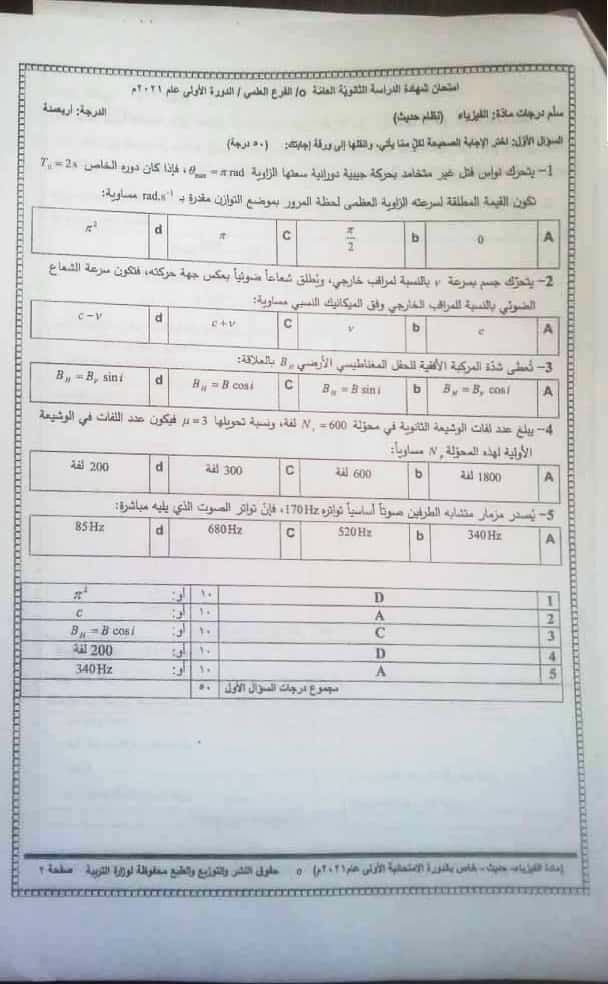 امتحان شهادة الدراسة الثانوية العامة /٥ الفرع العلمي / الدورة الأولى عام ٢٠٢١م
سلّم درجات مادة: الفيزياء (نظام حديث) الدرجة: أربعمئة
السؤال الأول: اختر الإجابة الصحيحة لكلّ ممّا يأتي، وانقلها إلى ورقة إجابتك: (٥٠ درجة)
1- يتحرك نواس فتل غير متخامد بحركة جيبية دورانية سعتها الزاوية θmax = π rad، فإذا كان دوره الخاص T₀ = 2s
تكون القيمة المطلقة لسرعته الزاوية العظمى لحظة المرور بموضع التوازن مقدرة بـ rad.s⁻¹ مساوية:
A 0 b π/2 C π d π²
2- يتحرّك جسم بسرعة v بالنسبة لمراقب خارجي، ويُطلق شعاعاً ضوئياً بعكس جهة حركته، فتكون سرعة الشعاع
الضوئي بالنسبة للمراقب الخارجي وفق الميكانيك النسبي مساوية:
A c b v C c + v d c − v
3- تُعطى شدّة المركبة الأفقية للحقل المغناطيسي الأرضي B_H بالعلاقة:
A B_H = B_v cos i b B_H = B sin i C B_H = B cos i d B_H = B_v sin i
4- يبلغ عدد لفات الوشيعة الثانوية في محوّلة N_s = 600 لفة، ونسبة تحويلها μ = 3 فيكون عدد اللفات في الوشيعة
الأولية لهذه المحوّلة N_p مساوياً:
A 1800 لفة b 600 لفة C 300 لفة d 200 لفة
5- يُصدر مزمار متشابه الطرفين صوتاً أساسياً تواتره 170Hz، فإنّ تواتر الصوت الذي يليه مباشرة:
A 340Hz b 520Hz C 680Hz d 85Hz
1 D ١٠ أو: π²
2 A ١٠ أو: c
3 C ١٠ أو: B_H = B cos i
4 D ١٠ أو: 200 لفة
5 A ١٠ أو: 340Hz
مجموع درجات السؤال الأول ٥٠
(مادة الفيزياء- حديث - خاص بالدورة الامتحانية الأولى عام٢٠٢١م) ٥ حقوق النشر والتوزيع والطبع محفوظة لوزارة التربية صفحة ٢